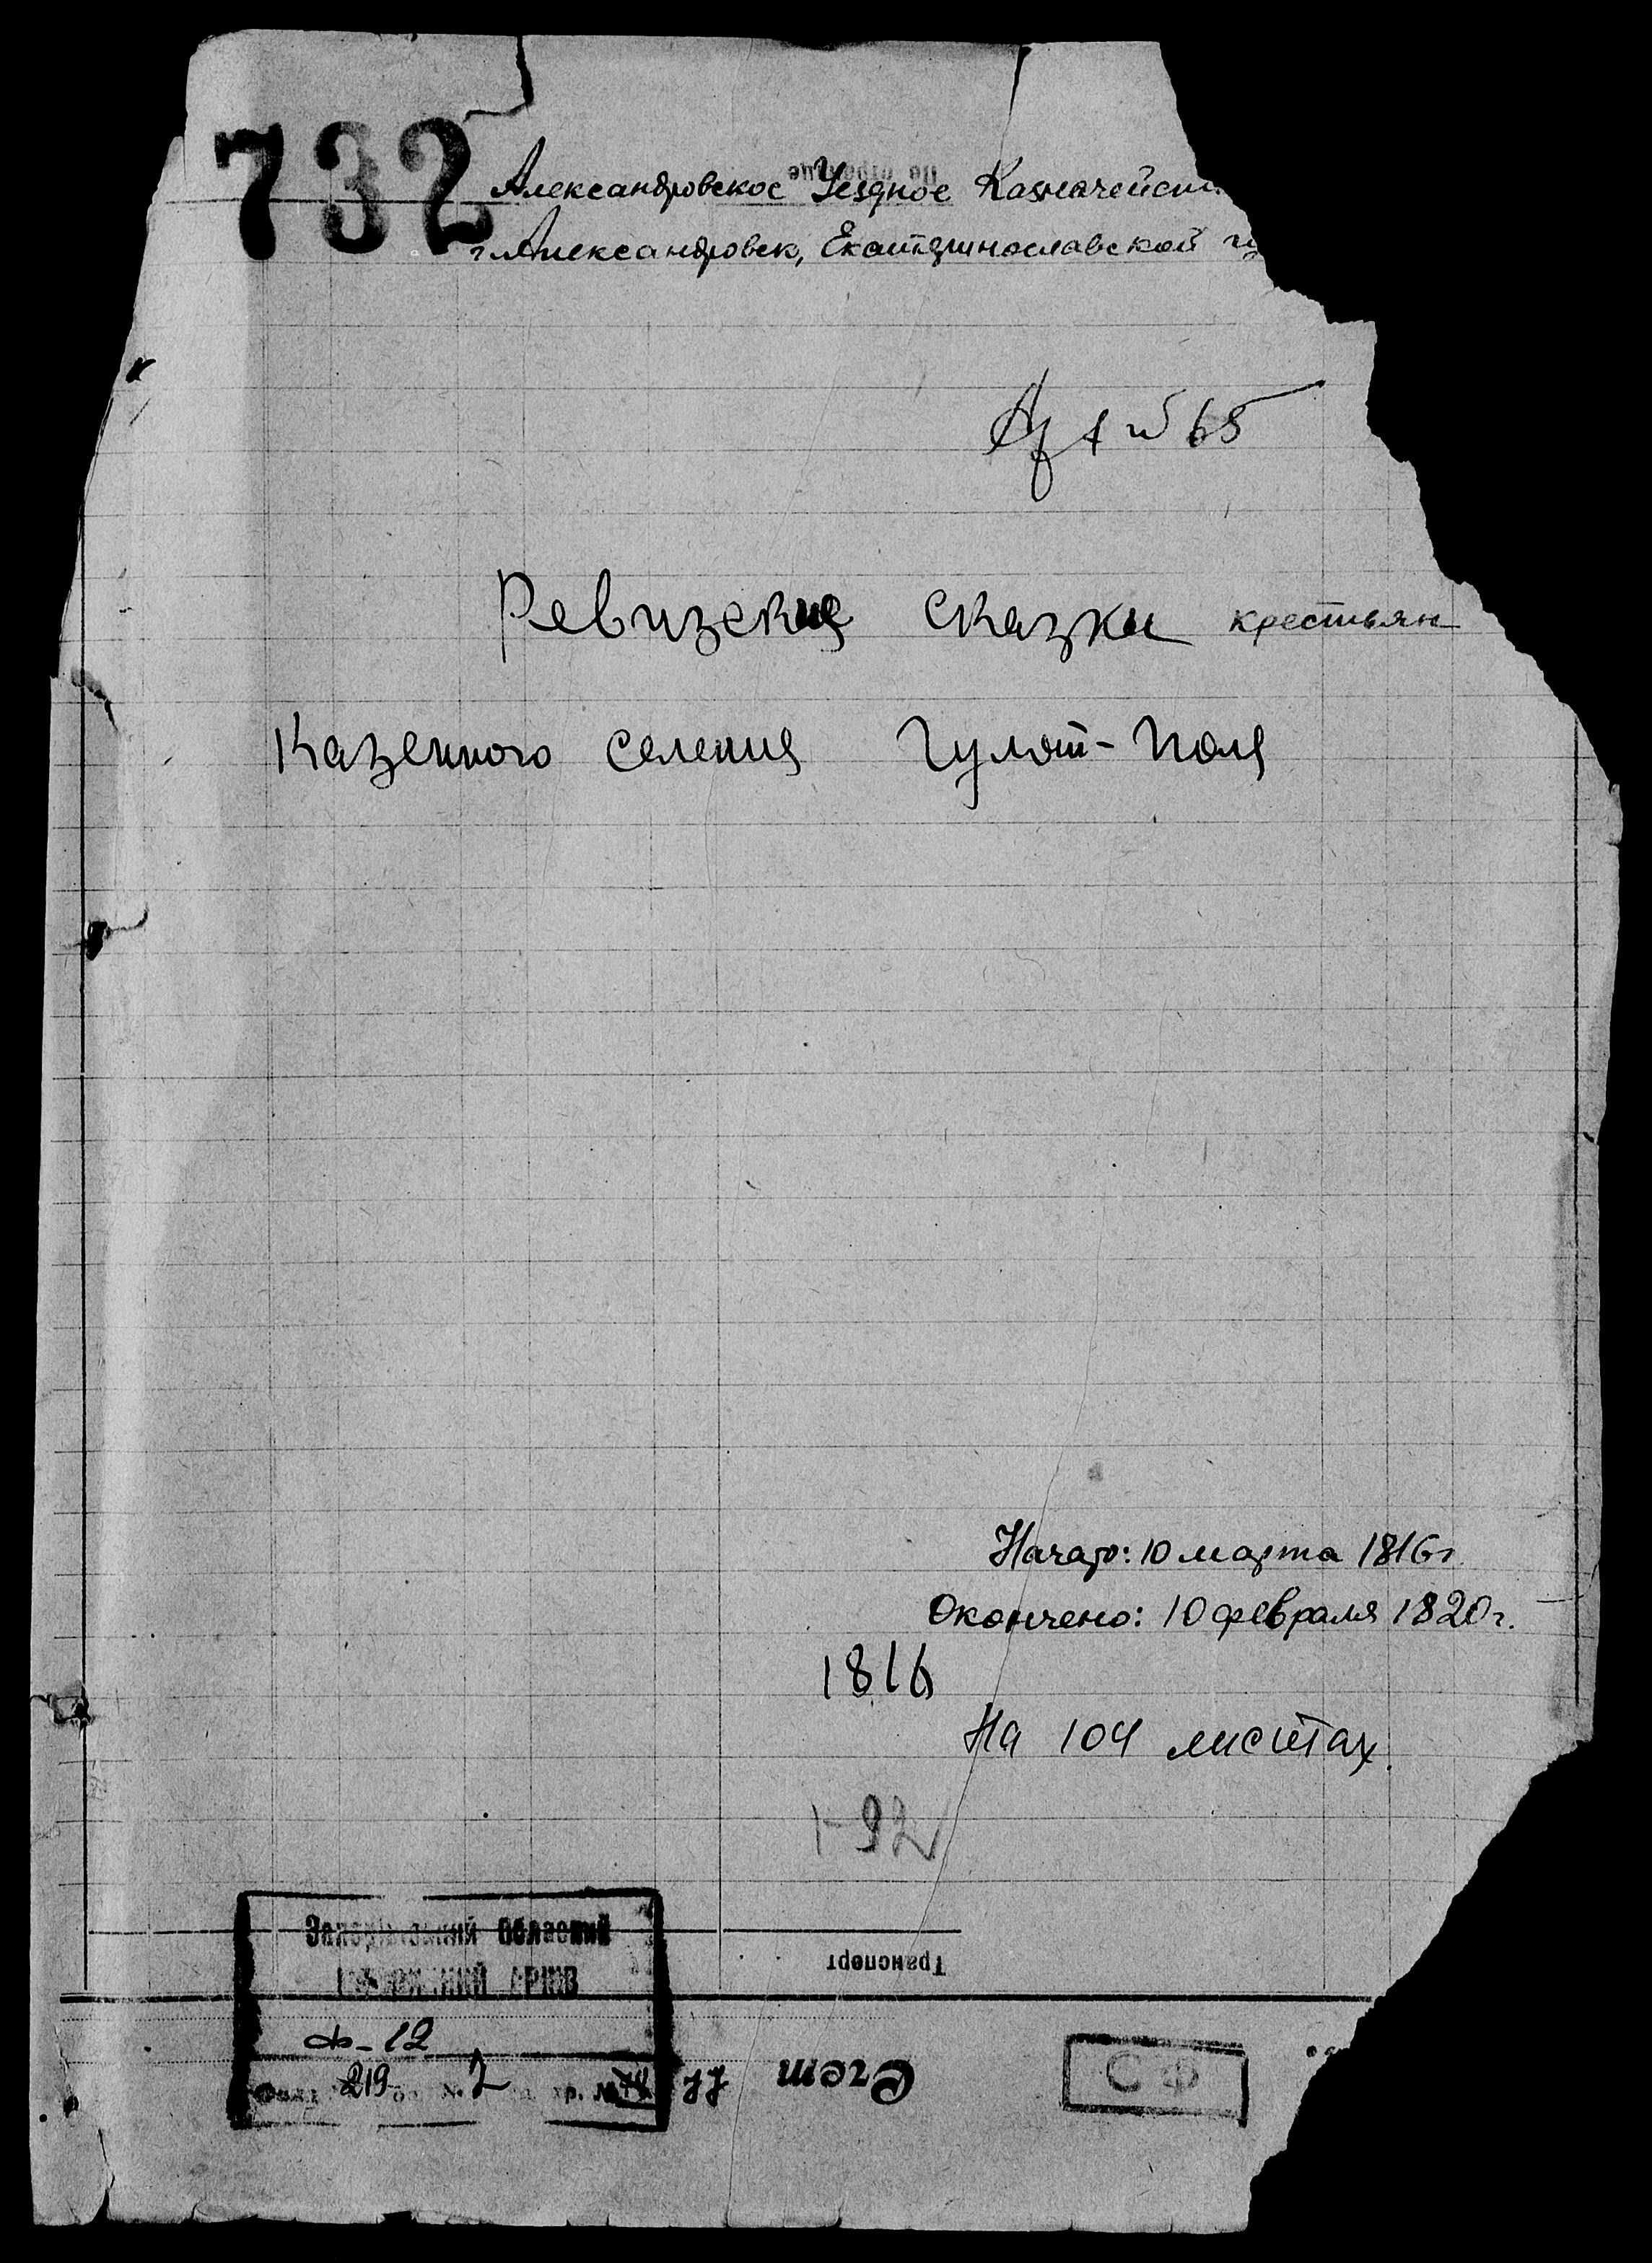 732
Александровское Уездное Казначейств
г. Александровск, Екатеринославской гу
65
Ревизские сказки крестьян
казенного селения Гуляй-Поля
Начато: 10 марта 1816 г.
Окончено: 10 февраля 1820 г.
1816
На 104 листах.
1-92
Запорізький Обласний
АРХІВ
Транспорт
ф-12
219 № 2 хр. № 77
Счет
СФ